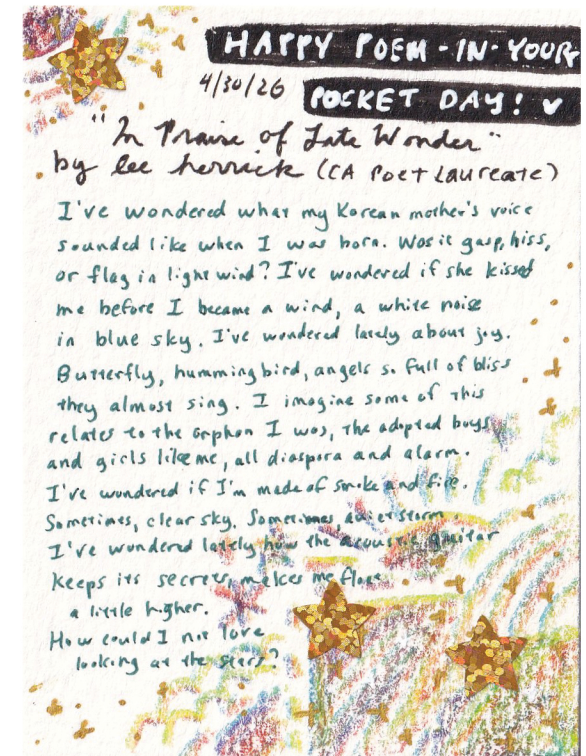 HAPPY POEM-IN-YOUR
4/30/26 POCKET DAY!
"In Praise of Late Wonder"
by lee herrick (CA Poet Laureate)
I've wondered what my Korean mother's voice
sounded like when I was born. Was it gasp, hiss,
or flag in light wind? I've wondered if she kissed
me before I became a wind, a white noise
in blue sky. I've wondered lately about joy.
Butterfly, hummingbird, angels so full of bliss
they almost sing. I imagine some of this
relates to the orphan I was, the adopted boys
and girls like me, all diaspora and alarm.
I've wondered if I'm made of smoke and fire.
Sometimes, clear sky. Sometimes, quiet storm.
I've wondered lately how the acoustic guitar
keeps its secrets, makes me float
a little higher.
How could I not love
looking at the stars?